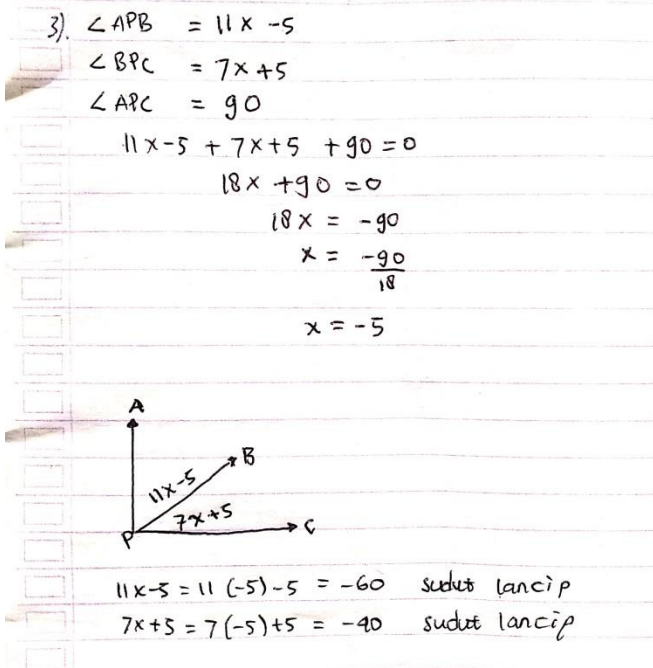 3). ∠APB = 11x -5
∠BPC = 7x+5
∠APC = 90
11x-5 + 7x+5 +90 = 0
18x +90 = 0
18x = -90
x = -90/18
x = -5
A
B
11x-5
7x+5
P
C
11x-5 = 11 (-5) -5 = -60 sudut lancip
7x+5 = 7(-5)+5 = -40 sudut lancip